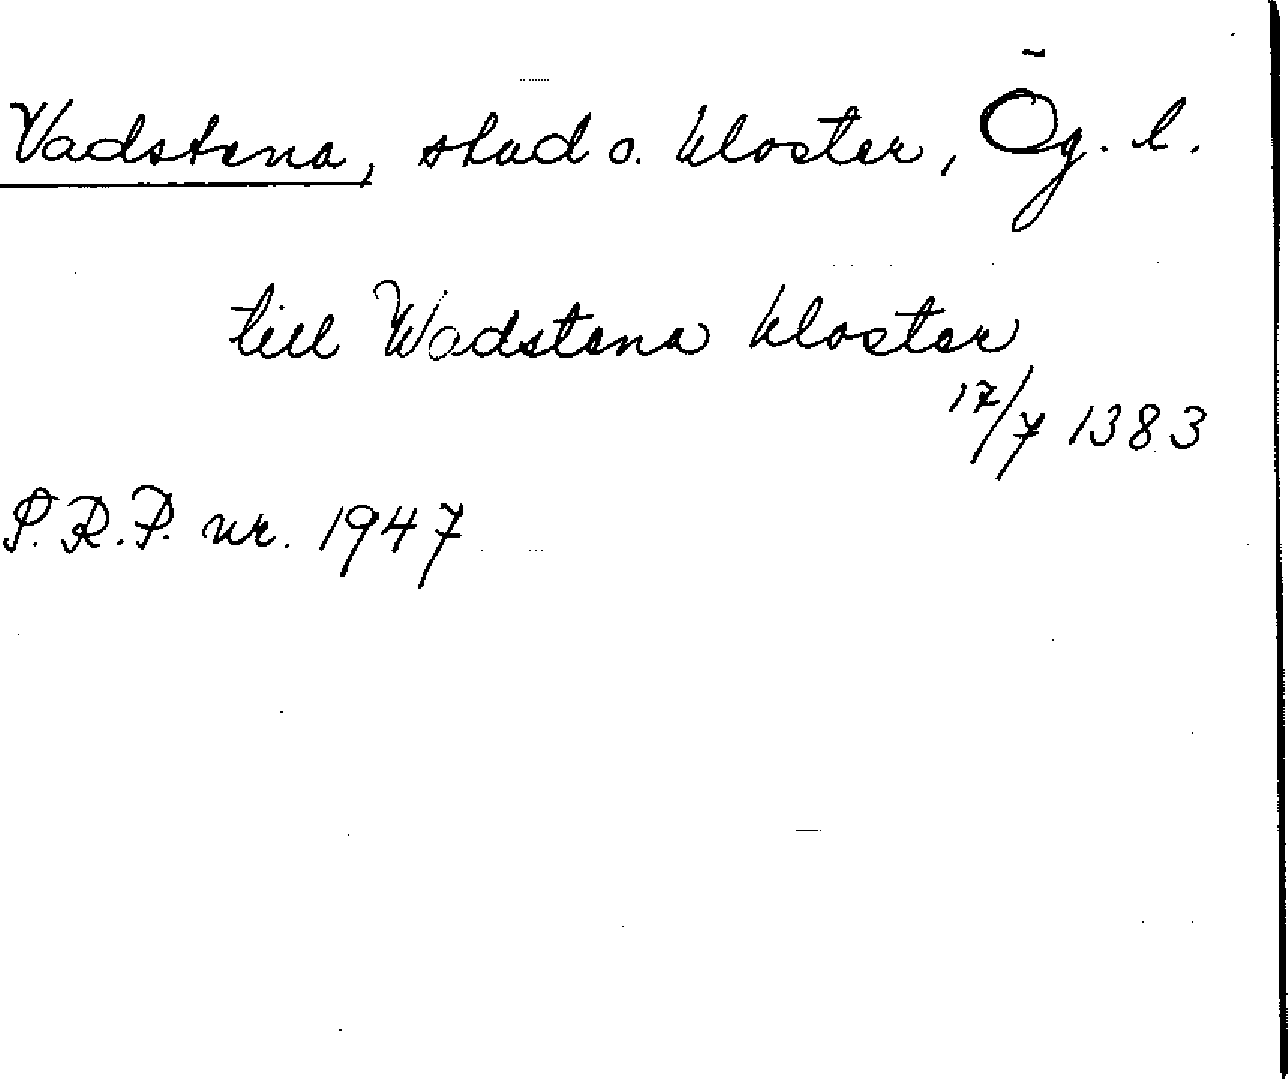 Vadstena, stad o. kloster, Ög. l.
till Wadstena kloster
17/7 1383
S.R.P. nr. 1947